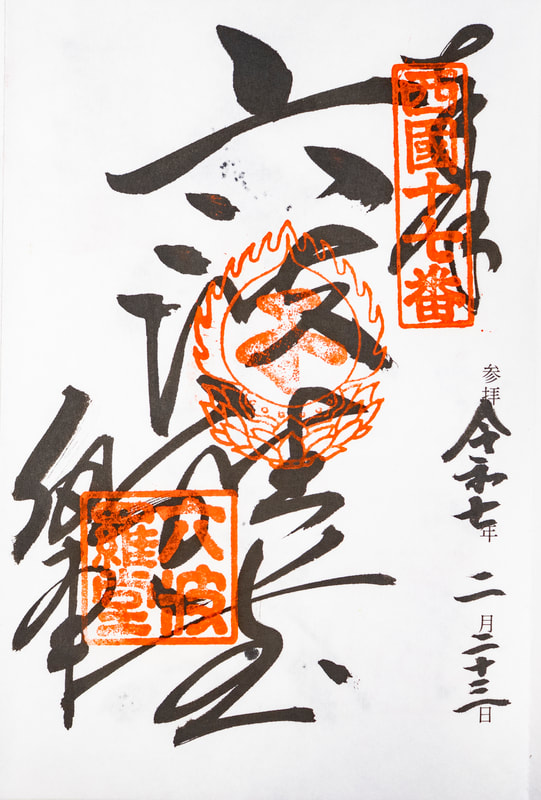 奉拝
西國十七番
参拝 令和七年 二月二十三日
六波羅堂
六波
羅堂